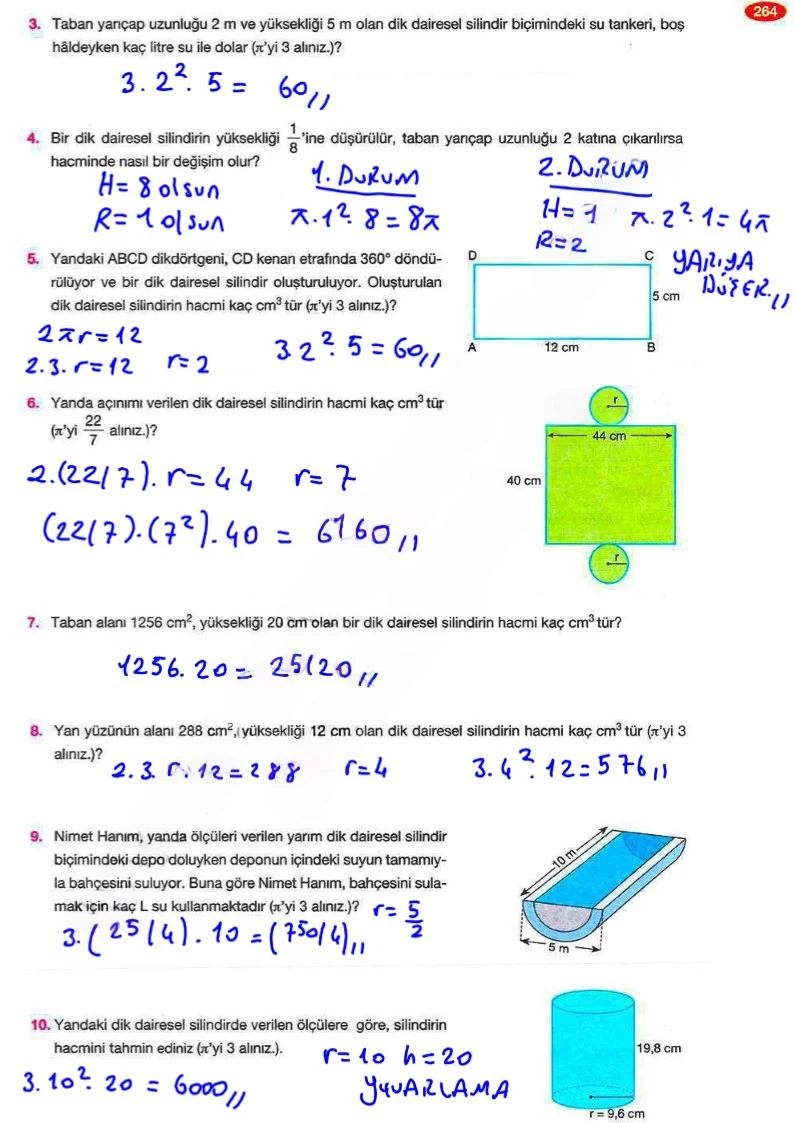 264
3. Taban yarıçap uzunluğu 2 m ve yüksekliği 5 m olan dik dairesel silindir biçimindeki su tankeri, boş
hâldeyken kaç litre su ile dolar (π'yi 3 alınız.)?
3. 2². 5 = 60,,
4. Bir dik dairesel silindirin yüksekliği 1/8 'ine düşürülür, taban yarıçap uzunluğu 2 katına çıkarılırsa
hacminde nasıl bir değişim olur?
H= 8 olsun
R= 1 olsun
1. DURUM
π.1². 8 = 8π
2. DURUM
H= 1 π. 2². 1= 4π
R=2
YARIYA
DÜŞER.,,
5. Yandaki ABCD dikdörtgeni, CD kenarı etrafında 360° döndü-
rülüyor ve bir dik dairesel silindir oluşturuluyor. Oluşturulan
dik dairesel silindirin hacmi kaç cm³ tür (π'yi 3 alınız.)?
2πr=12
2.3. r=12 r=2
3.2². 5 = 60,,
D C
5 cm
A 12 cm B
6. Yanda açınımı verilen dik dairesel silindirin hacmi kaç cm³ tür
(π'yi 22/7 alınız.)?
2.(22/7). r= 44 r= 7
(22/7).(7²).40 = 6160,,
r
44 cm
40 cm
r
7. Taban alanı 1256 cm², yüksekliği 20 cm olan bir dik dairesel silindirin hacmi kaç cm³ tür?
1256. 20 = 25120,,
8. Yan yüzünün alanı 288 cm², yüksekliği 12 cm olan dik dairesel silindirin hacmi kaç cm³ tür (π'yi 3
alınız.)?
2.3. r. 12=288 r=4 3.4². 12=576,,
9. Nimet Hanım, yanda ölçüleri verilen yarım dik dairesel silindir
biçimindeki depo doluyken deponun içindeki suyun tamamıy-
la bahçesini suluyor. Buna göre Nimet Hanım, bahçesini sula-
mak için kaç L su kullanmaktadır (π'yi 3 alınız.)? r= 5/2
3.(25/4). 10 =(750/4),,
10 m
5 m
10. Yandaki dik dairesel silindirde verilen ölçülere göre, silindirin
hacmini tahmin ediniz (π'yi 3 alınız.).
r=10 h=20
YUVARLAMA
3. 10². 20 = 6000,,
19,8 cm
r = 9,6 cm